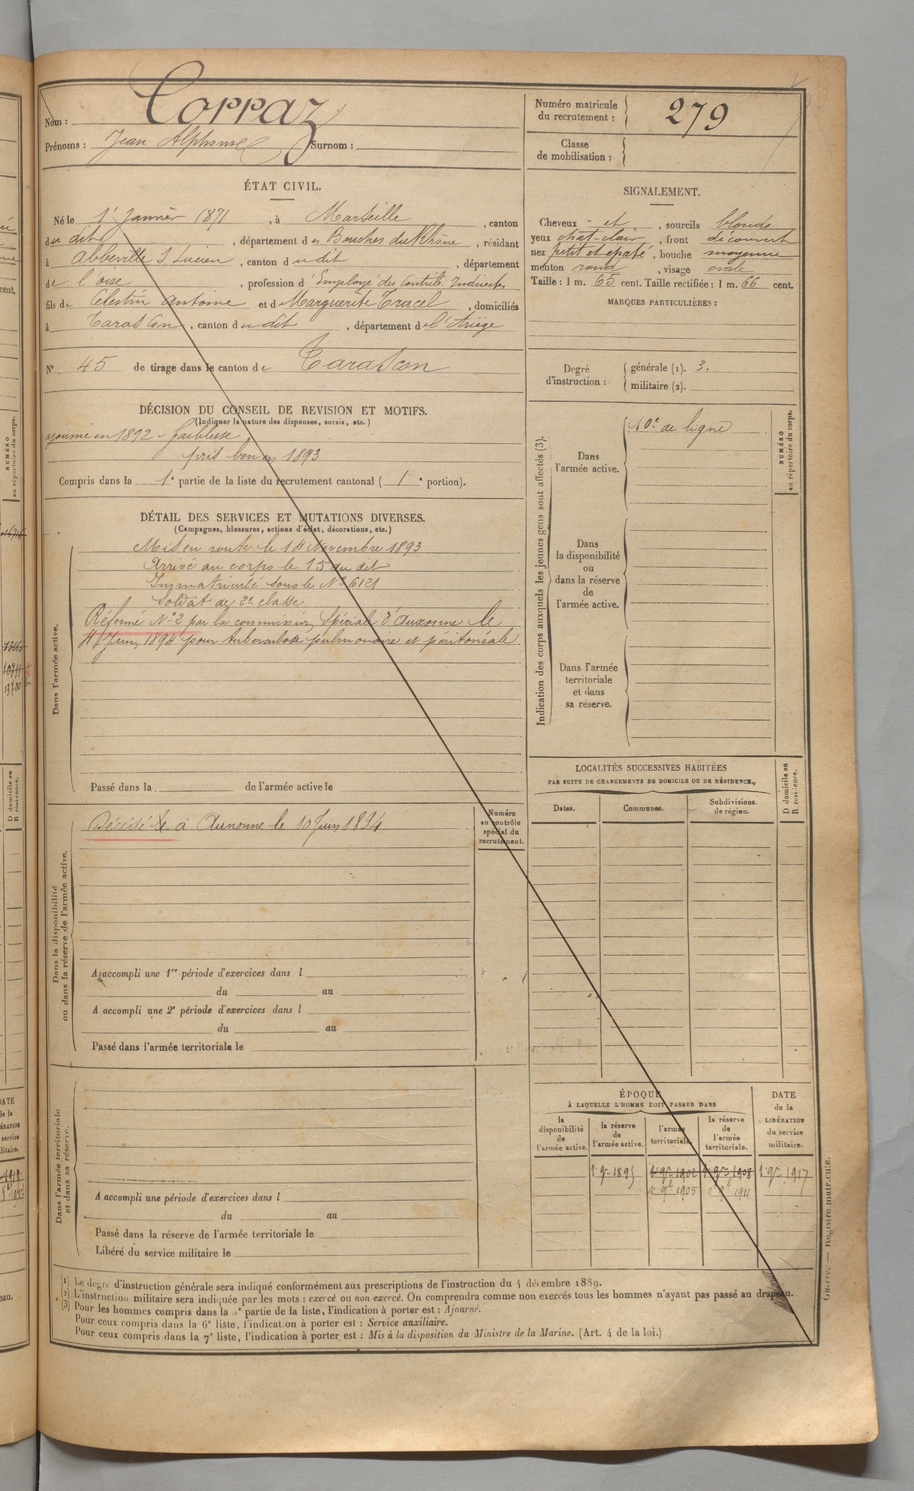 Nom : Corraz
Prénoms : Jean Alphonse Surnom :
Numéro matricule du recrutement : 279
Classe de mobilisation :
ÉTAT CIVIL.
Né le 1er Janvier 1871, à Marseille, canton
du dit, département des Bouches du Rhône, résidant
à Abbeville St Lucien, canton dudit, département
de l'Oise, profession d'Employé des Contrib. Indirectes
fils de Célestin Antoine et de Marguerite Tracel, domiciliés
à Tarascon, canton dudit, département de l'Ariège
N° 45 de tirage dans le canton de Tarascon
SIGNALEMENT.
Cheveux et, sourcils blonds
yeux chat-clair, front découvert
nez petit et épaté, bouche moyenne
menton rond, visage ovale
Taille : 1 m. 65 cent. Taille rectifiée : 1 m. 66 cent.
MARQUES PARTICULIÈRES :
Degré d'instruction : générale (1). 3.
militaire (2).
DÉCISION DU CONSEIL DE REVISION ET MOTIFS.
(Indiquer la nature des dispenses, sursis, etc.)
ajourné en 1892 - faiblesse
pris bon en 1893
Compris dans la 1e partie de la liste du recrutement cantonal (1e portion).
DÉTAIL DES SERVICES ET MUTATIONS DIVERSES.
(Campagnes, blessures, actions d'éclat, décorations, etc.)
Dans l'armée active.
Mis en route le 14 Novembre 1893
Arrivé au corps le 15 du dit
Immatriculé sous le N° 6121
Soldat de 2e classe
Réformé N° 2 par la commission Spéciale d'Auxonne le
4 Juin 1894 pour tuberculose pulmonaire et péritonéale
Passé dans la de l'armée active le
Indication des corps auxquels les jeunes gens sont affectés (3).
Dans l'armée active.
10e de ligne
Dans la disponibilité ou dans la réserve de l'armée active.
Dans l'armée territoriale et dans sa réserve.
NUMÉRO au répertoire du corps.
LOCALITÉS SUCCESSIVES HABITÉES
PAR SUITE DE CHANGEMENTS DE DOMICILE OU DE RÉSIDENCE.
Dates. Communes. Subdivisions de région.
D domicile ou R résidence.
Dans la disponibilité ou dans la réserve de l'armée active.
Décédé à Auxonne le 10 Juin 1894
Numéro au contrôle spécial du recrutement.
A accompli une 1re période d'exercices dans l
du au
A accompli une 2e période d'exercices dans l
du au
Passé dans l'armée territoriale le
Dans l'armée territoriale et dans sa réserve.
A accompli une période d'exercices dans l
du au
Passé dans la réserve de l'armée territoriale le
Libéré du service militaire le
ÉPOQUE
À LAQUELLE L'HOMME DOIT PASSER DANS
la disponibilité de l'armée active.
la réserve de l'armée active.
l'armée territoriale.
la réserve de l'armée territoriale.
DATE de la LIBÉRATION du service militaire.
1er 9bre 1895 1er 9bre 1902 1er 9bre 1908 1er 9bre 1917
1er 9bre 1905 1er 9bre 1911
(1) Le degré d'instruction générale sera indiqué conformément aux prescriptions de l'instruction du 4 décembre 1889.
(2) L'instruction militaire sera indiquée par les mots : exercé ou non exercé. On comprendra comme non exercés tous les hommes n'ayant pas passé au drapeau.
(3) Pour les hommes compris dans la 5e partie de la liste, l'indication à porter est : Ajourné.
Pour ceux compris dans la 6e liste, l'indication à porter est : Service auxiliaire.
Pour ceux compris dans la 7e liste, l'indication à porter est : Mis à la disposition du Ministre de la Marine. (Art. 4 de la loi.)
Guerre. — Registre matricule.